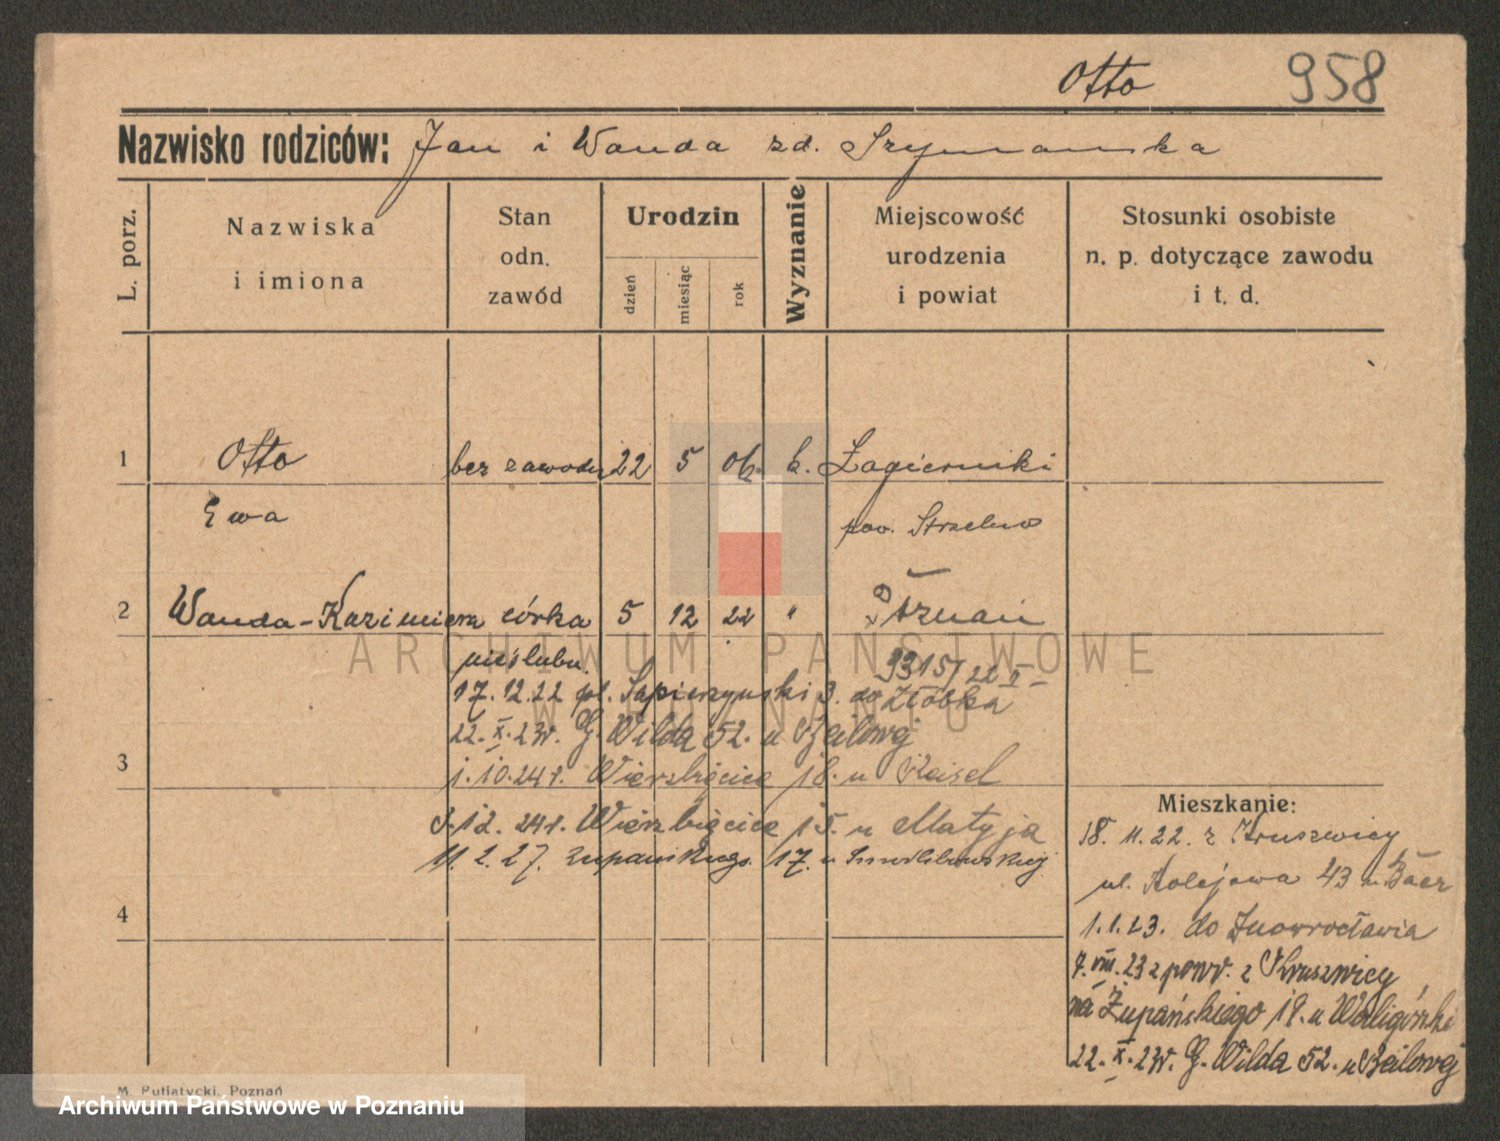 Otto 958
Nazwisko rodziców: Jan i Wanda zd. Szymańska
L. porz.
Nazwiska i imiona
Stan odn. zawód
Urodzin
dzień
miesiąc
rok
Wyznanie
Miejscowość urodzenia i powiat
Stosunki osobiste n. p. dotyczące zawodu i t. d.
1 Otto bez zawodu 22 5 k. Łagierniki
Ewa pow. Strzelno
2 Wanda-Kazimiera córka 5 12 22 " Poznań
nieślubn. 9315/22
17.12.22 pl. Sapieżyński 3. do żłóbka
22.X.23r. G. Wilda 52. u
3 1.10.24r. Wierzbięcice 18. u
12.24r. Wierzbięcice 15. u Matyja
11.2.27. Żupańskiego. 17. u
4
Mieszkanie:
18.11.22 z Kruszwicy
ul. Kolejowa 43 u
1.1.23. do Inowrocławia
7.VIII.23 z powr. z Kruszwicy
na Żupańskiego 18. u Waligórski
22.X.23r. G. Wilda 52. u
M. Putiatycki, Poznań
ARCHIWUM PAŃSTWOWE
W POZNANIU
Archiwum Państwowe w Poznaniu